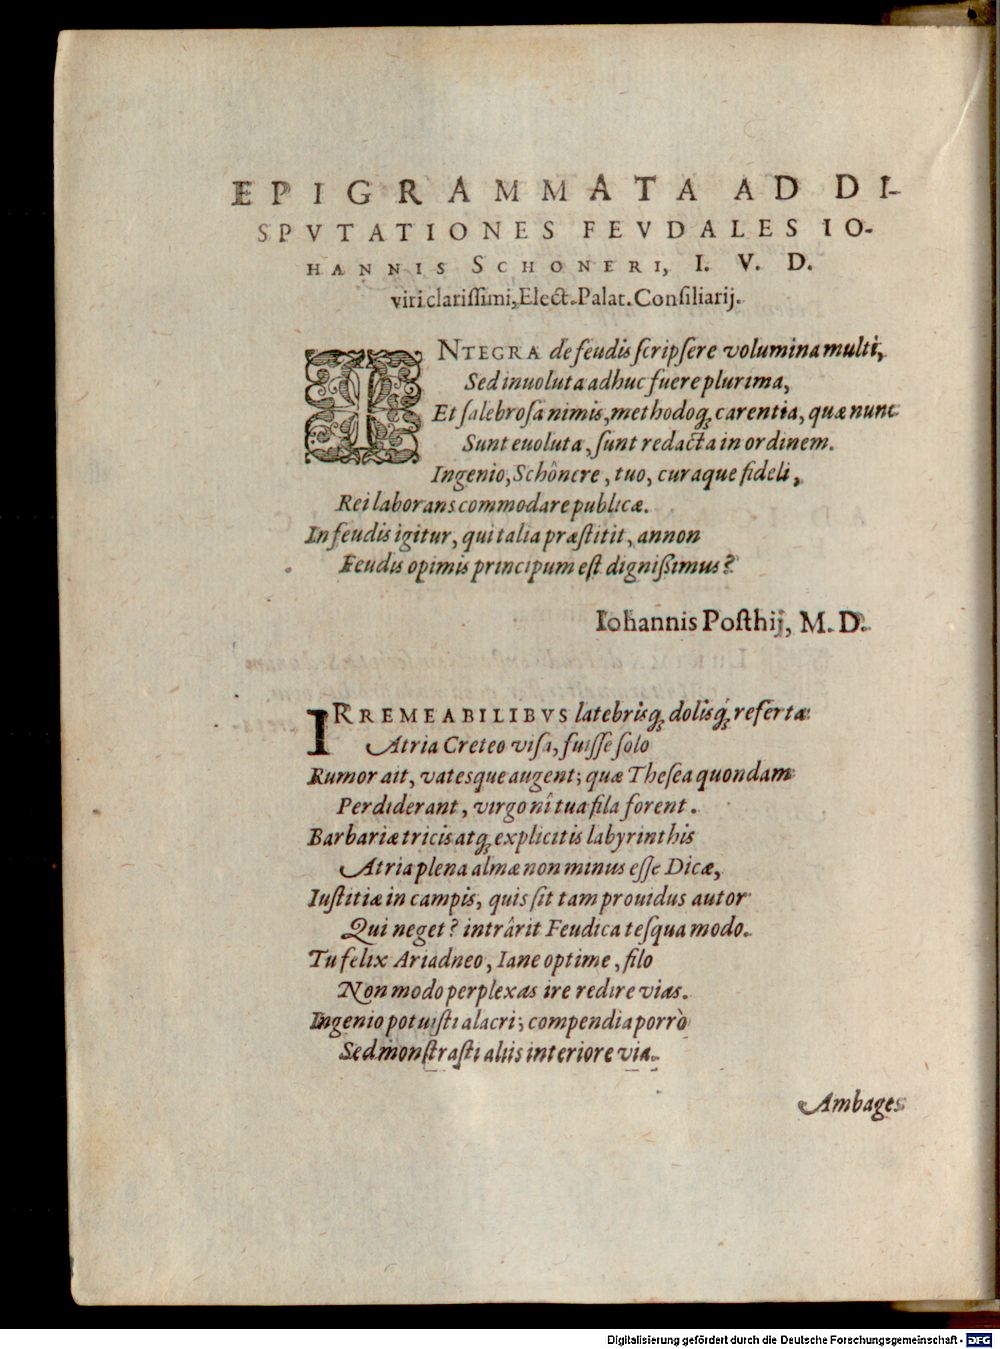 EPIGRAMMATA AD DI-
SPVTATIONES FEVDALES IO-
HANNIS SCHONERI, I. V. D.
viri clarissimi, Elect. Palat. Consiliarij.
INTEGRA de feudis scripsere volumina multi,
Sed inuoluta adhuc fuere plurima,
Et salebrosa nimis, methodoq; carentia, quæ nunc
Sunt euoluta, sunt redacta in ordinem.
Ingenio, Schônere, tuo, curaque fideli,
Rei laborans commodare publicæ.
In feudis igitur, qui talia præstitit, annon
Feudis opimis principum est dignissimus?
Iohannis Posthij, M. D.
IRREMEABILIBVS latebrisq; dolisq; refertæ
Atria Creteo visa, fuisse solo
Rumor ait, vatesque augent; quæ Thesea quondam
Perdiderant, virgo nî tua fila forent.
Barbariæ tricis atq; explicitis labyrinthis
Atria plena almæ non minus esse Dicæ,
Iustitiæ in campis, quis sit tam prouidus autor
Qui neget? intrârit Feudica tesqua modo.
Tu felix Ariadneo, Iane optime, filo
Non modo perplexas ire redire vias.
Ingenio potuisti alacri; compendia porrò
Sed monstrasti aliis interiore via.
Ambages
Digitalisierung gefördert durch die Deutsche Forschungsgemeinschaft - DFG